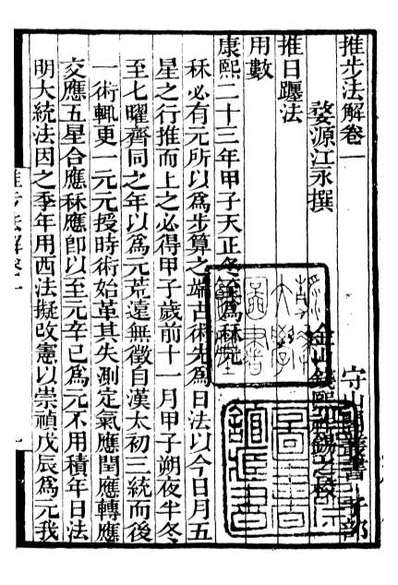 推步法解卷一
守山閣叢書 子部
婺源江永撰
金山錢熙祚錫之校
推日躔法
用數
康熙二十三年甲子天正冬至為秝元
秝必有元所以為步算之端古術先為日法以今日月五
星之行推而上之必得甲子歲前十一月甲子朔夜半冬
至七曜齊同之年以為元荒遠無徵自漢太初三統而後
一術輒更一元元授時術始革其失測定氣應閏應轉應
交應五星合應秝應卽以至元辛巳為元不用積年日法
明大統法因之季年用西法擬改憲以崇禎戊辰為元我